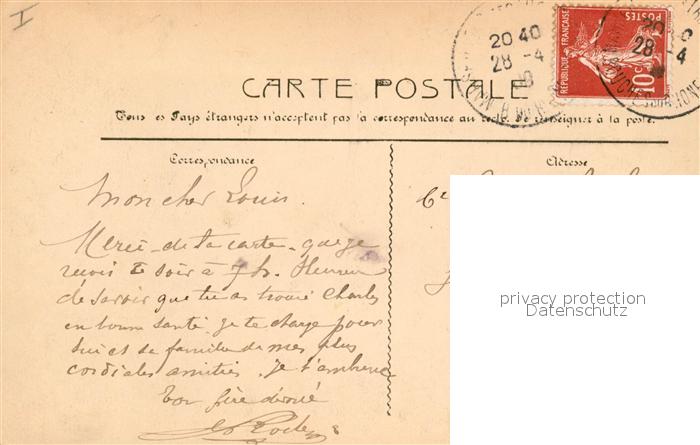 I
20 40
28 - 4
10
RÉPUBLIQUE FRANÇAISE
POSTES
10
20 0
28 4
BOUCHES-DU-RHONE
CARTE POSTALE
Tous les Pays étrangers n'acceptent pas la correspondance au recto. Se renseigner à la poste.
Correspondance
Adresse
Mon cher Louis.
Merci de ta carte que je
reçois ce soir à 7 h. Heureux
de savoir que tu as trouvé Charles
en bonne santé. Je te charge pour
lui et sa famille de mes plus
cordiales amitiés. Je t'embrasse
Ton frère dévoué
privacy protection
Datenschutz